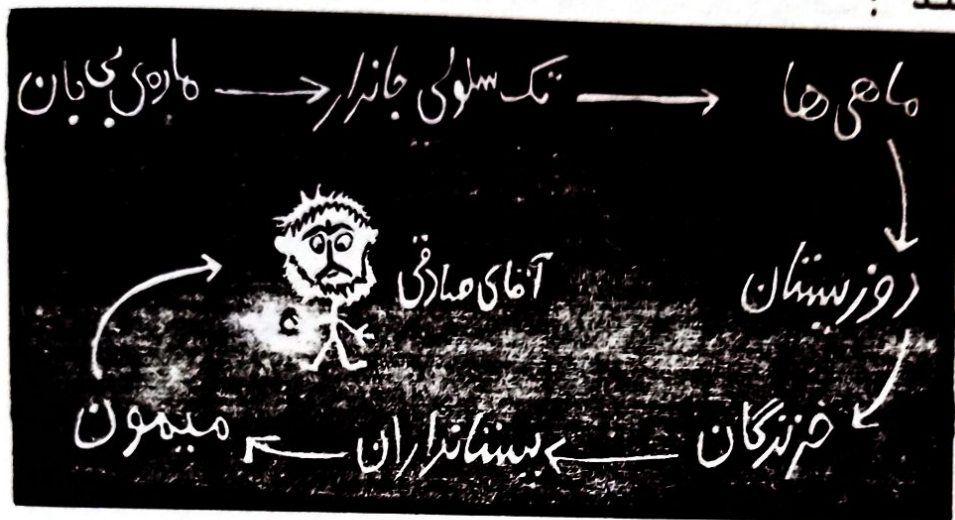 ماده‌ی بی جان
تک سلولی جاندار
ماهی ها
دوزیستان
خزندگان
پستانداران
میمون
آقای صادقی